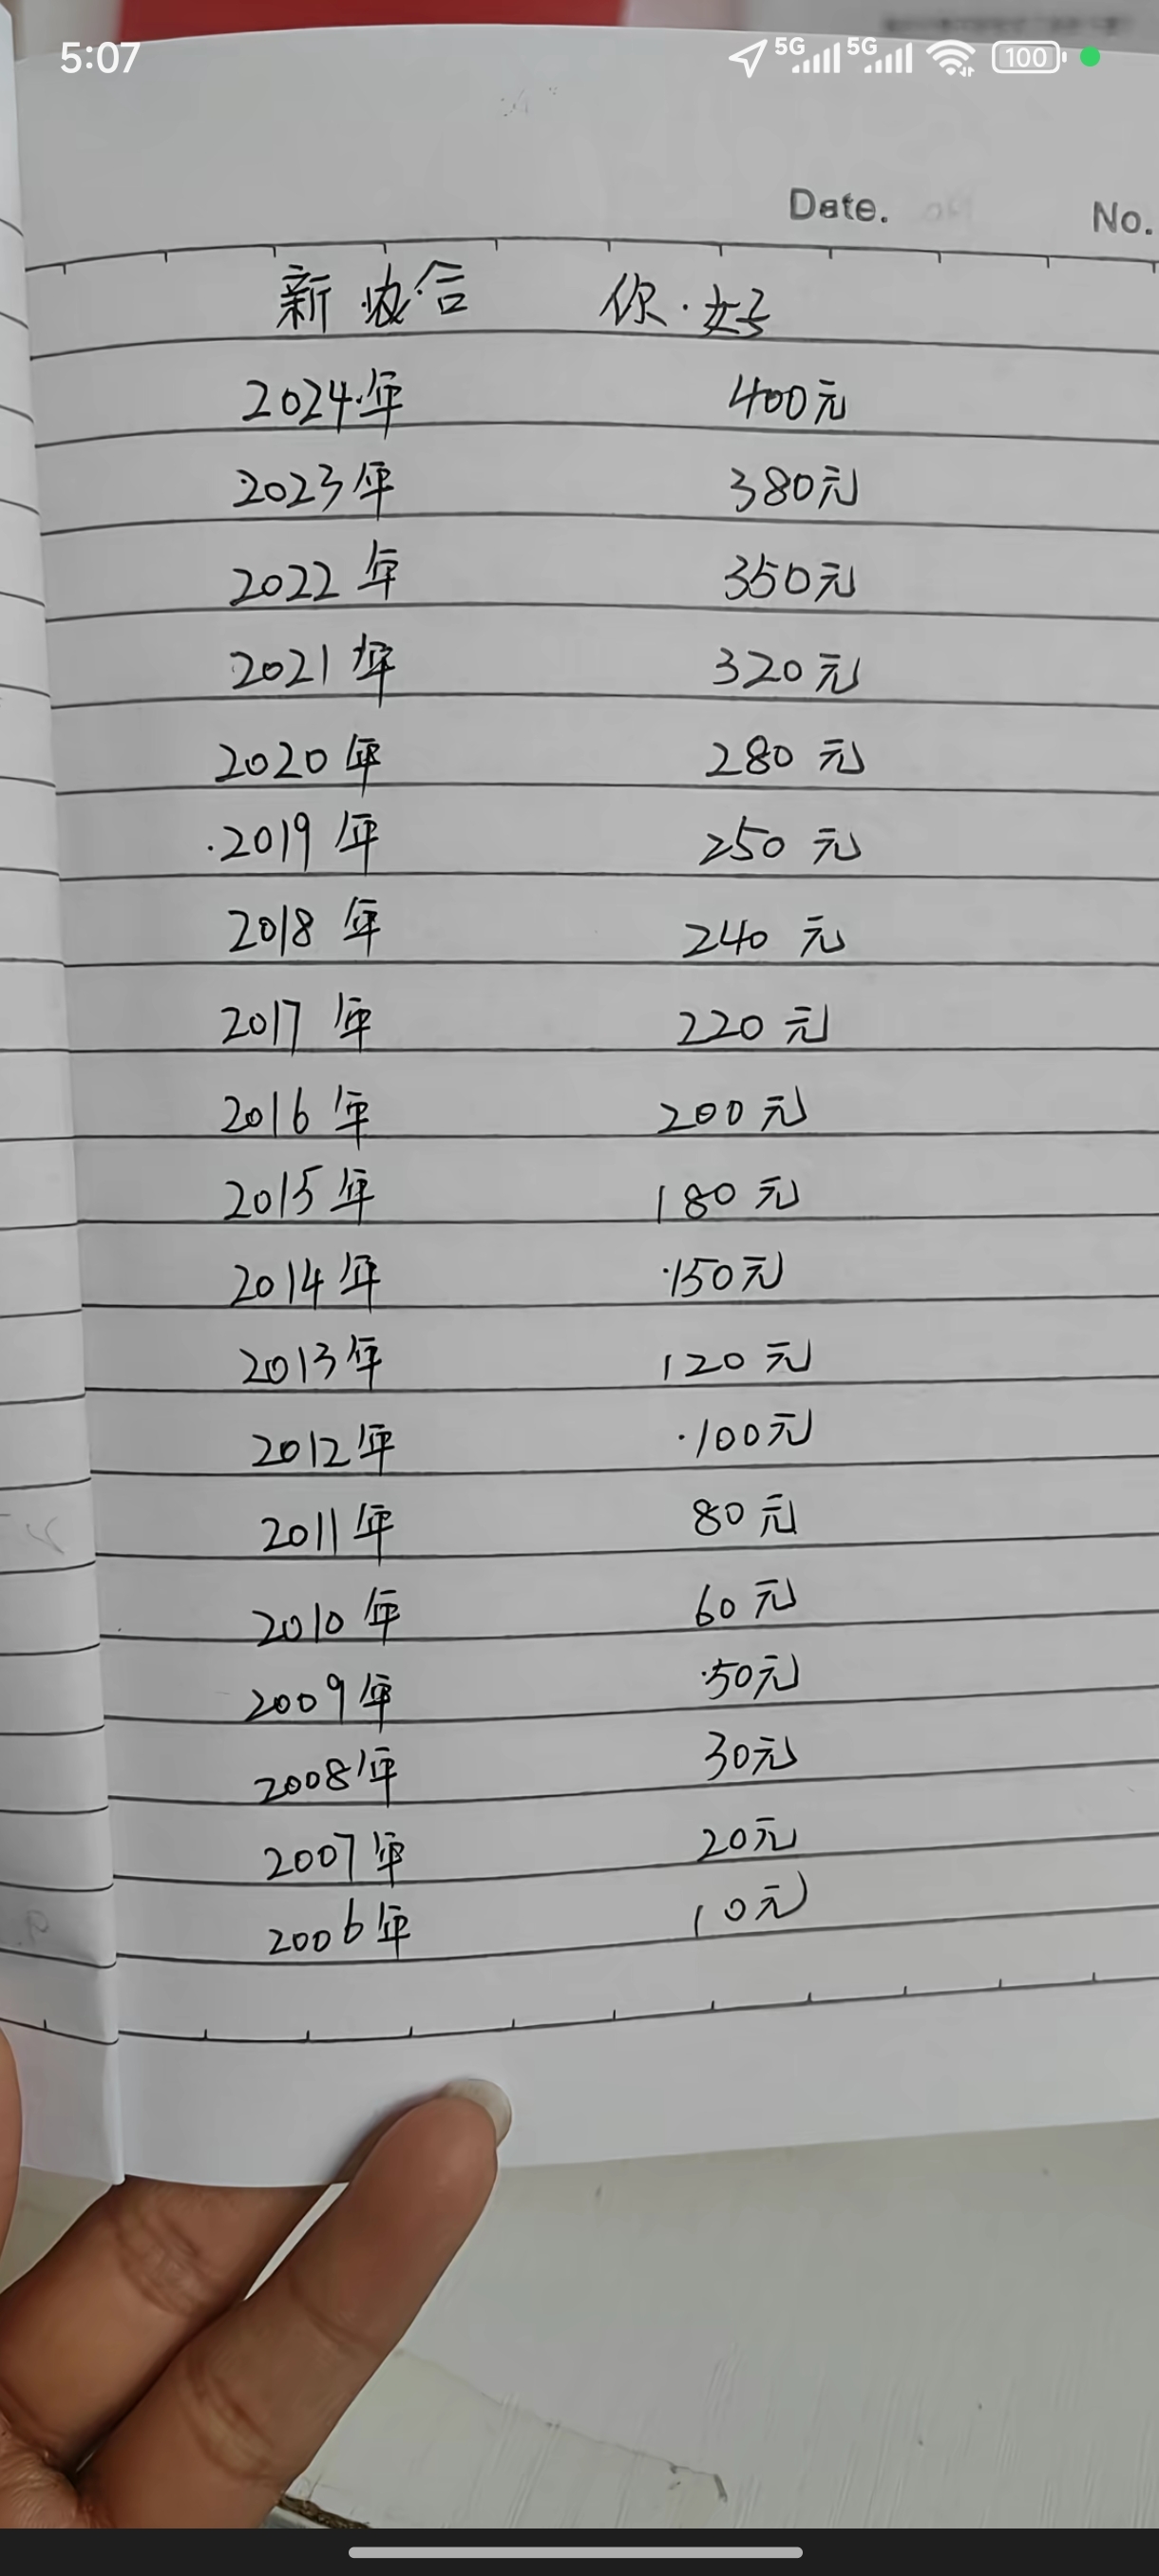 5:07 5G 5G 100
Date. No.
新农合 你·好
2024年 400元
2023年 380元
2022年 350元
2021年 320元
2020年 280元
2019年 250元
2018年 240元
2017年 220元
2016年 200元
2015年 180元
2014年 150元
2013年 120元
2012年 100元
2011年 80元
2010年 60元
2009年 50元
2008年 30元
2007年 20元
2006年 10元